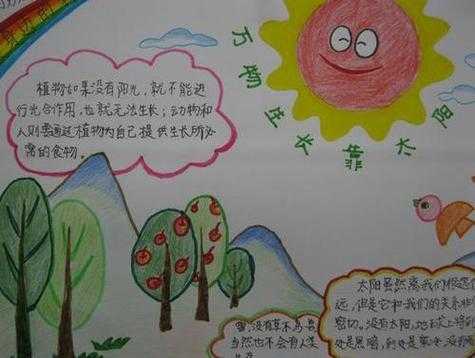 万物生长靠太阳
植物如果没有阳光,就不能进
行光合作用,也就无法生长;动物和
人则需通过植物为自己提供生长所必
需的食物。
太阳虽然离我们很遥
远,但是它和我们的关系非
密切。没有太阳,地球上将
处是黑暗,到处是
没有草木鸟
当然也不会有人类